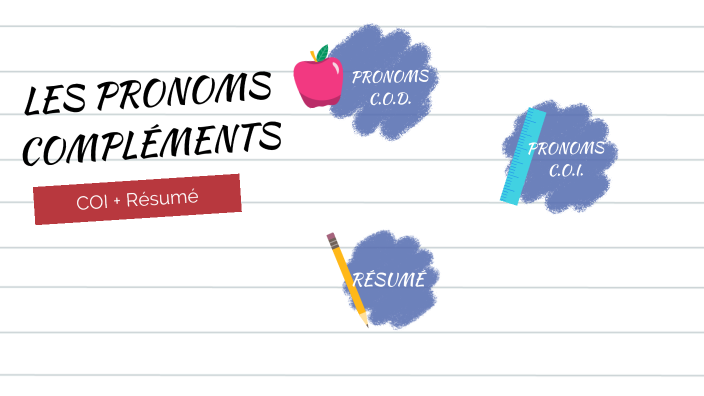 LES PRONOMS
COMPLÉMENTS
COI + Résumé
PRONOMS
C.O.D.
PRONOMS
C.O.I.
RÉSUMÉ